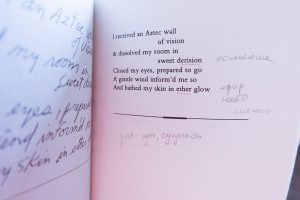 an Aztec
of vis
my room in
sweet
eyes, prepare
wind inform
skin in ether
I received an Aztec wall
of vision
& dissolved my room in
sweet derision
Closed my eyes, prepared to go
A gentle wind inform'd me so
And bathed my skin in ether glow
эфир
небо